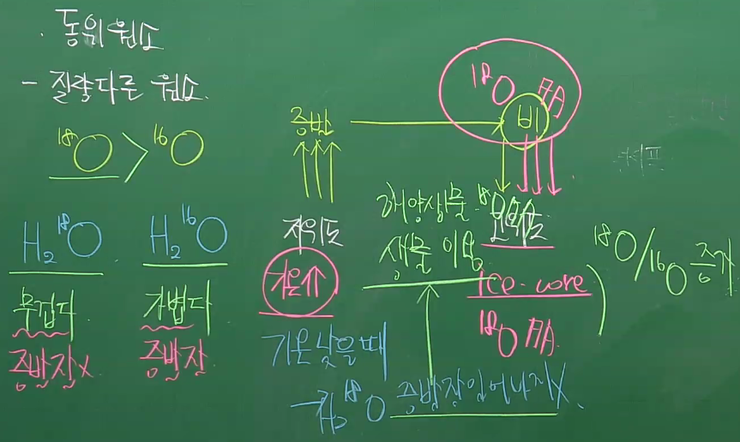 · 동위원소
- 질량다른 원소.
¹⁸O > ¹⁶O
H₂¹⁸O
무겁다
증발잘x
H₂¹⁶O
가볍다
증발잘
증발
¹⁸O 많
비
저위도
기온↑
해양생물 ¹⁸O
생물 이용
고위도
ice-core
¹⁸O 많
¹⁸O/¹⁶O 증가
기온낮을때
→ H₂¹⁸O 증발잘일어나지X